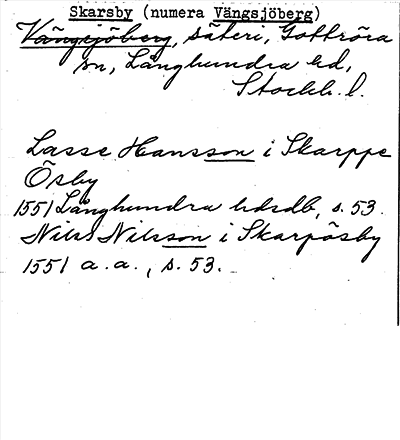 Skarsby (numera Vängsjöberg)
Vängsjöberg, säteri, Gottröra
sn, Långhundra hd,
Stockh. l.
Lasse Hansson i Skarppe
Ösby
1551 Långhundra hdsdb, s. 53.
Nils Nilsson i Skarpösby
1551 a. a., s. 53.